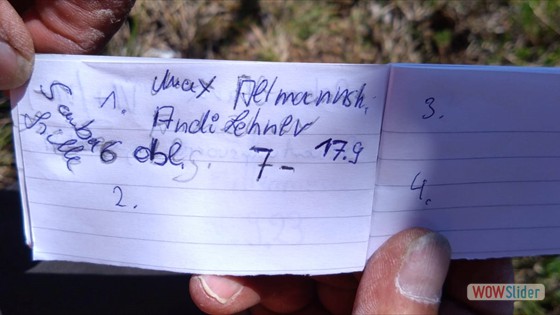 1. Max Altmannsh.
Andi Lehner
6 obl. 7- 17.9
2.
3.
4.
Saubere
Stelle
WOWSlider